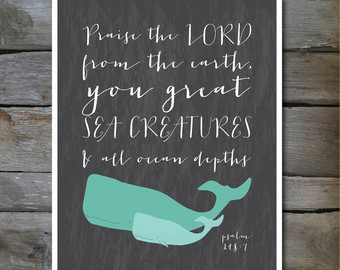 Praise the LORD
from the earth,
you great
SEA CREATURES
& all ocean depths
psalm
148:7